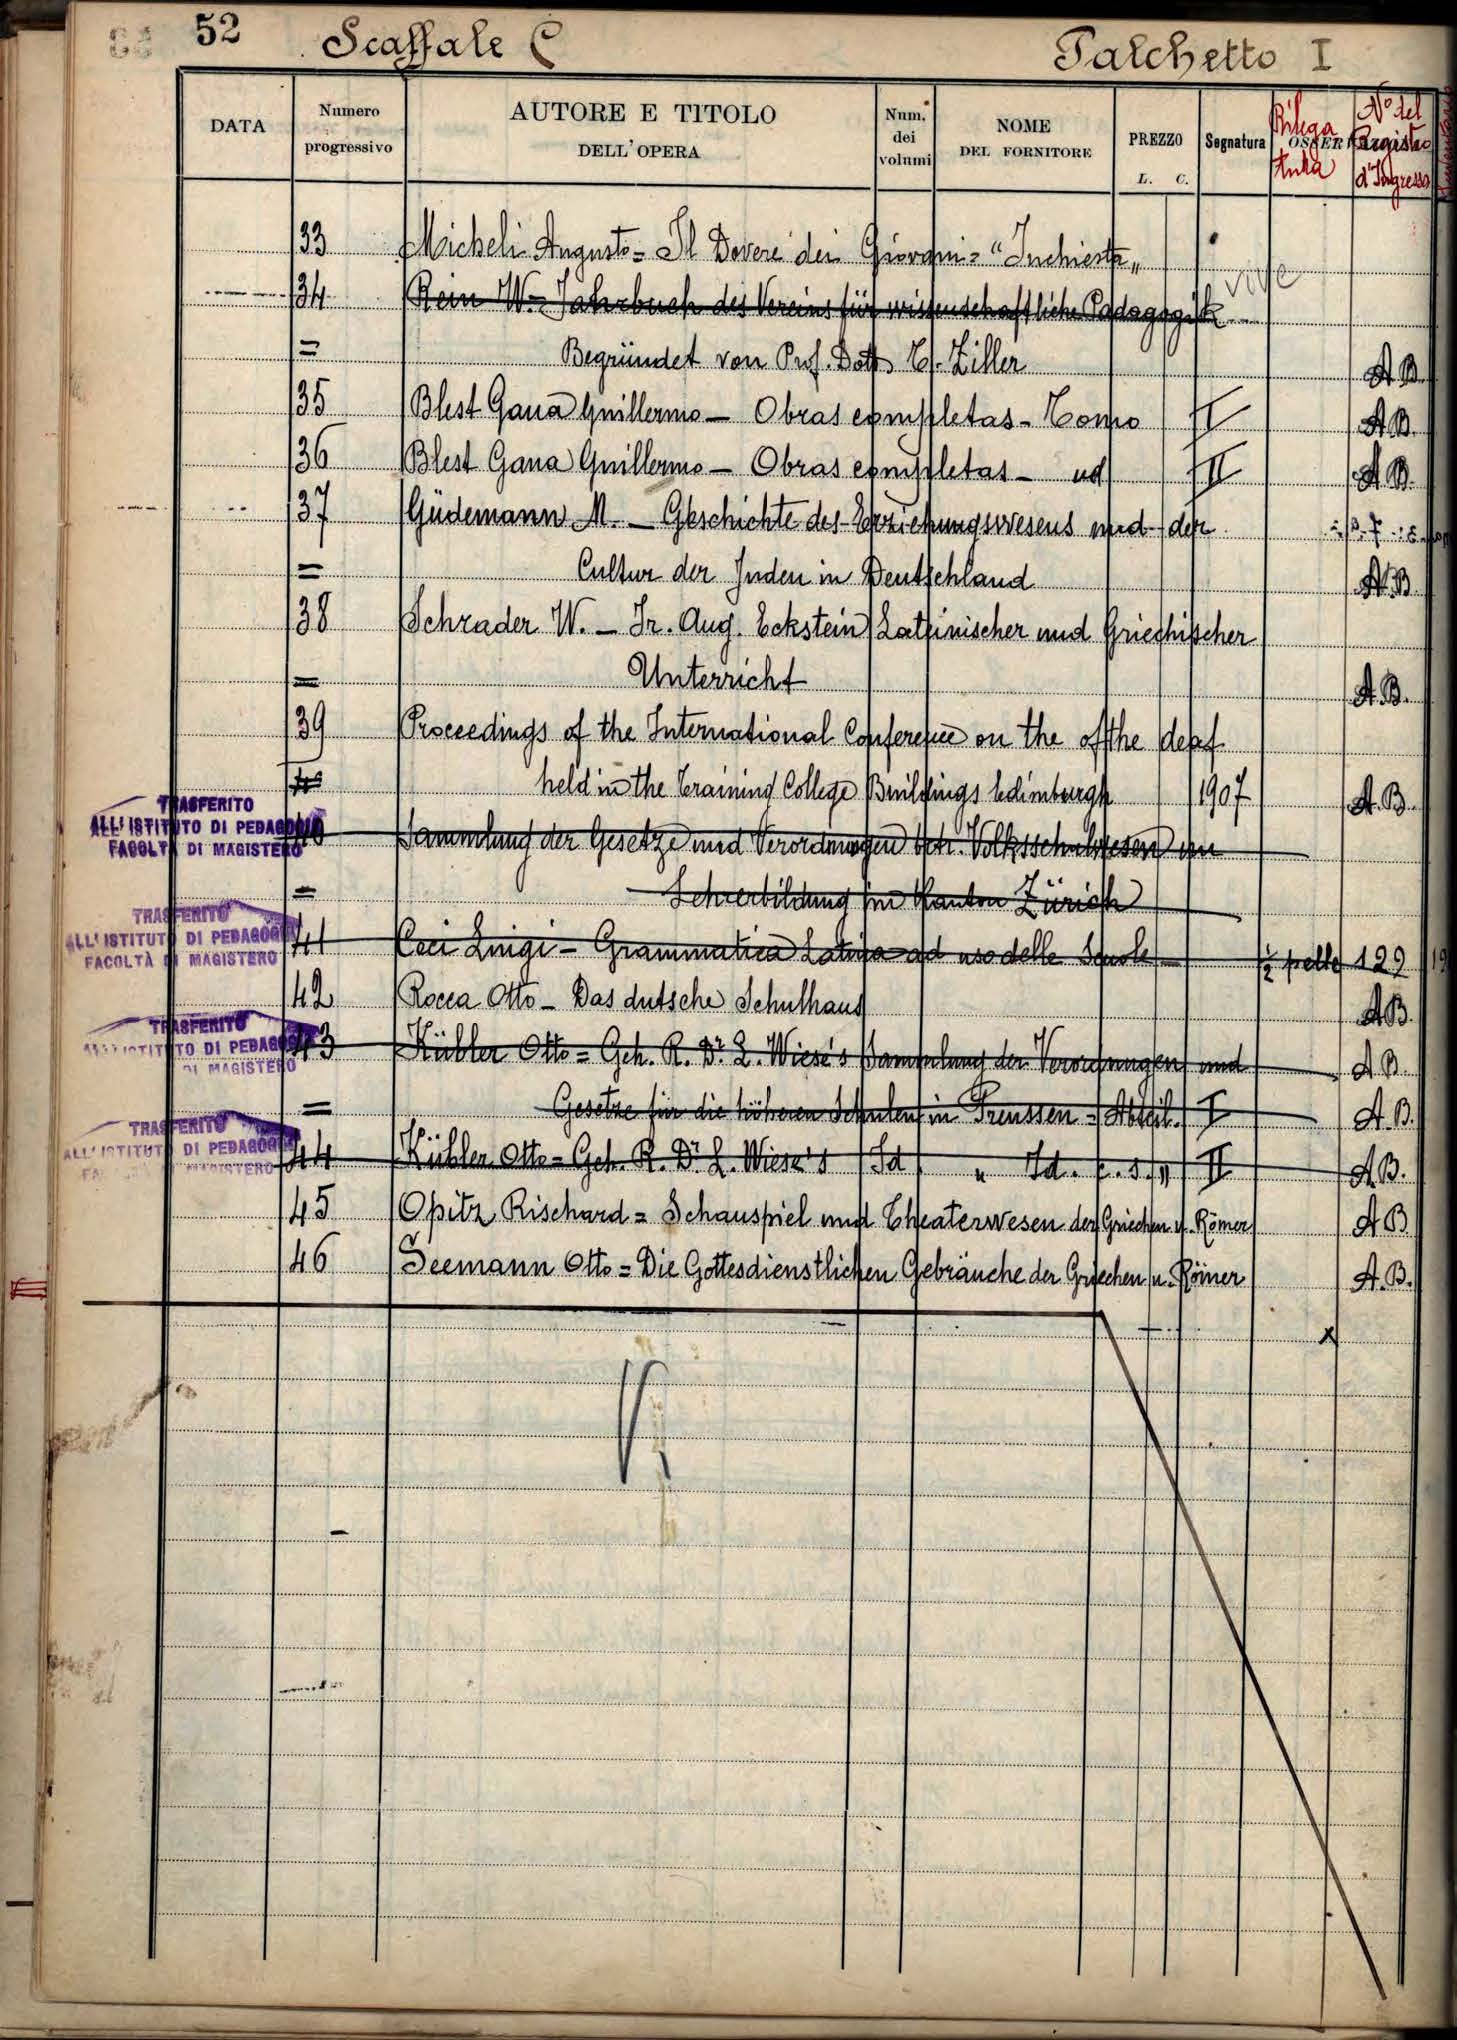 52 Scaffale C Palchetto I
DATA Numero progressivo AUTORE E TITOLO DELL'OPERA Num. dei volumi NOME DEL FORNITORE PREZZO L. C. Segnatura Rilegatura N° del Registro d'Ingresso
33 Micheli Augusto = Il Dovere dei Giovani = "Inchiesta"
34 Rein W. = Jahrbuch des Vereins für wissenschaftliche Padagogik vive
= Begründet von Prof. Dott T. Ziller A B
35 Blest Gana Guillermo — Obras completas - Tomo I A B.
36 Blest Gana Guillermo — Obras completas - id II A B.
37 Güdemann M. — Geschichte des Erziehungswesens und der
= Cultur der Juden in Deutschland A.B.
38 Schrader W. — Fr. Aug. Eckstein Lateinischer und Griechischer
= Unterricht A.B.
39 Proceedings of the International Conference on the of the deaf
held in the Training College Buildings Edimburgh 1907 A.B.
TRASFERITO
ALL'ISTITUTO DI PEDAGOGIA
FACOLTÀ DI MAGISTERO
40 Sammlung der Gesetze und Verordnungen betr. Volksschulwesen un
= Lehrerbildung im Kanton Zürich
TRASFERITO
ALL'ISTITUTO DI PEDAGOGIA
FACOLTÀ DI MAGISTERO
41 Ceci Luigi - Grammatica Latina ad uso delle Scuole ½ pelle 129
42 Rocca Otto - Das dutsche Schulhaus A B.
TRASFERITO
ALL'ISTITUTO DI PEDAGOGIA
DI MAGISTERO
43 Kübler Otto = Geh. R. Dr. L. Wiese's Sammlung der Verordnungen und A B.
= Gesetze für die höheren Schulen in Preussen = Abteil. I A.B.
TRASFERITO
ALL'ISTITUTO DI PEDAGOGIA
MAGISTERO
44 Kübler Otto = Geh. R. Dr L. Wiese's Id " Id. c. s. " II A.B.
45 Opitz Rischard = Schauspiel und Theaterwesen der Griechen u. Römer A B
46 Seemann Otto = Die Gottesdienstlichen Gebräuche der Griechen u. Römer A.B.